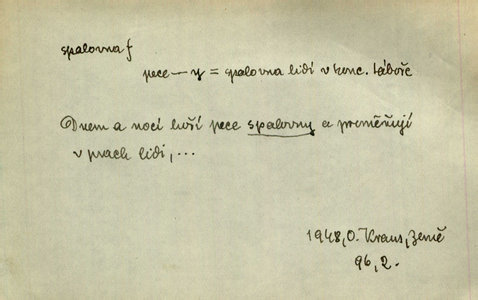 spalovna f
pece — y = spalovna lidí v konc. táboře
Dnem a nocí hučí pece spalovny a proměňují
v prach lidi, ...
1948, O. Kraus, Země
96, 2.